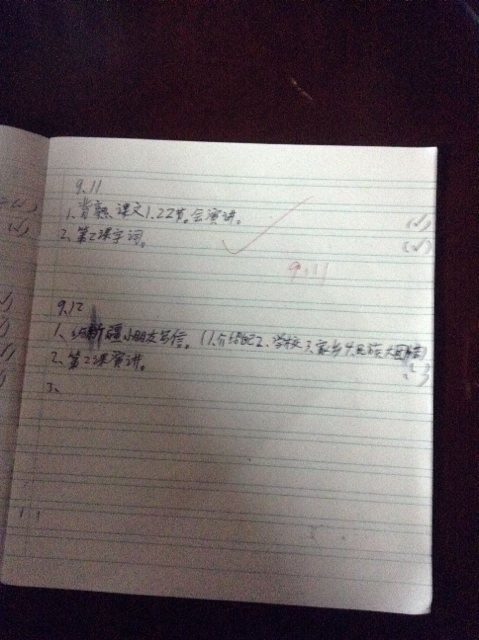 9.11
1、背熟课文1.22节。会演讲。
(✓)
2、第2课字词。
(✓)
9.11
9.12
1、给新疆小朋友写信。(1.介绍自己2、学校3、家乡4.民族大团结)
2、第2课演讲。
3、